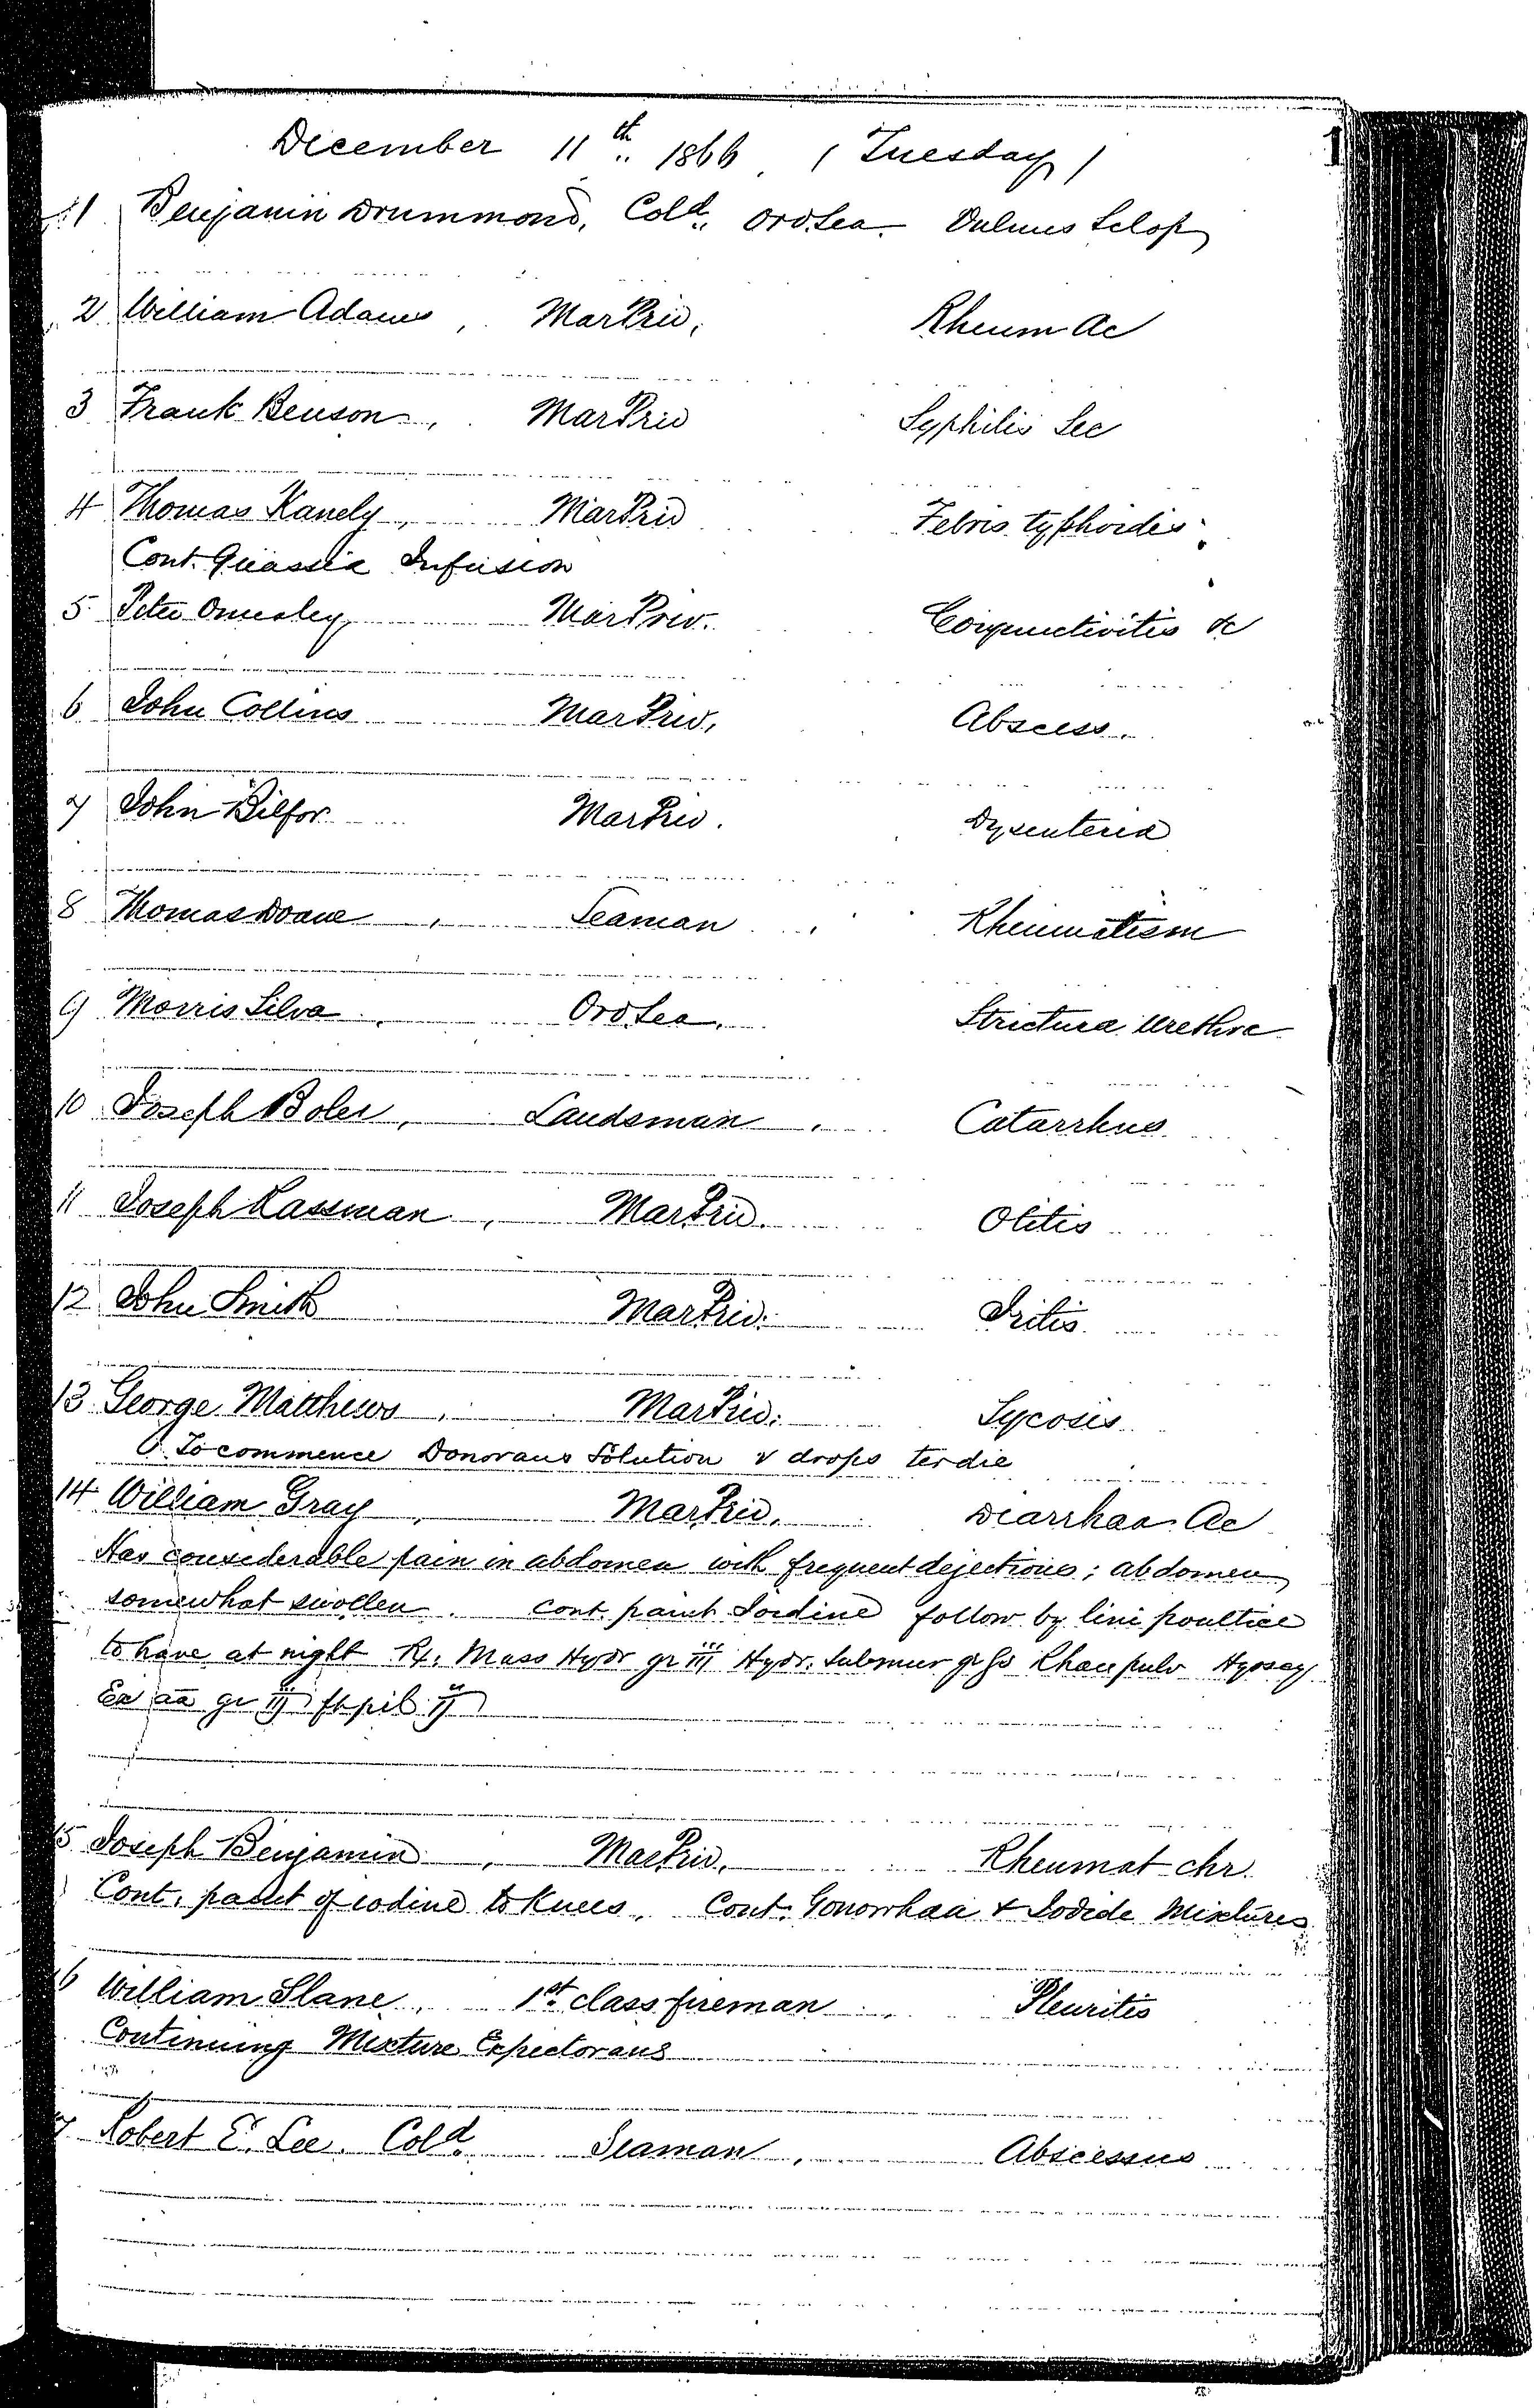 December 11th 1866. (Tuesday)
1
1 Benjamin Drummond, Cold. Ord. Sea. Vulnus Sclop
2 William Adams, Mar Priv, Rheum Ac
3 Frank Benson, Mar Priv Syphilis Sec
4 Thomas Kanely, Mar Priv Febris typhoides.
Cont. Quassia Infusion
5 Peter Mar Priv. Conjunctivitis
6 John Collins Mar Priv, Abscess.
7 John Bilfor Mar Priv. Dysenteria
8 Thomas Doane, Seaman, Rheumatism
9 Morris Silva. Ord. Sea. Strictura Urethra
10 Joseph Boler, Landsman, Catarrhus
11 Joseph Kassman, Mar Priv. Otitis
12 John Smith Mar Priv. Iritis
13 George Matthews, Mar Priv. Sycosis
To commence Donovans Solution v drops ter die
14 William Gray, Mar Priv. Diarrhaa Ac
Has considerable pain in abdomen with frequent dejections; abdomen
somewhat swollen. cont. paint Iodine follow by lini poultice
to have at night Rx. Mass Hydr gr iii Hydr. Submur gr Rhaei pulv Hyoscy
Ex aa gr iij ft pil ij
15 Joseph Benjamin, Mar Priv. Rheumat chr.
Cont. paint of iodine to Knees. Cont. Gonorrhaa & Iodide Mixtures
16 William Slane, 1st class fireman, Pleuritis
Continuing Mixture Expectorans
7 Robert E. Lee. Cold. Seaman, Abscessus